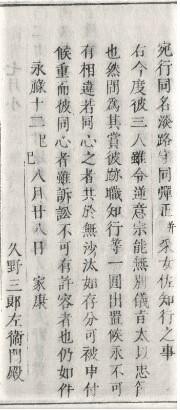 宛行同名淡路守同弾正采女佐知行之事
右今度彼三人雖令逆意宗能無別儀者太以忠節
也然間為其賞彼跡職知行等一円出置候永不可
有相違若同心之者共於無沙汰如存分可被申付
候重而彼同心者雖訴訟不可有許容者也仍如件
永禄十二己巳八月廿八日　家康
久野三郎左衛門殿